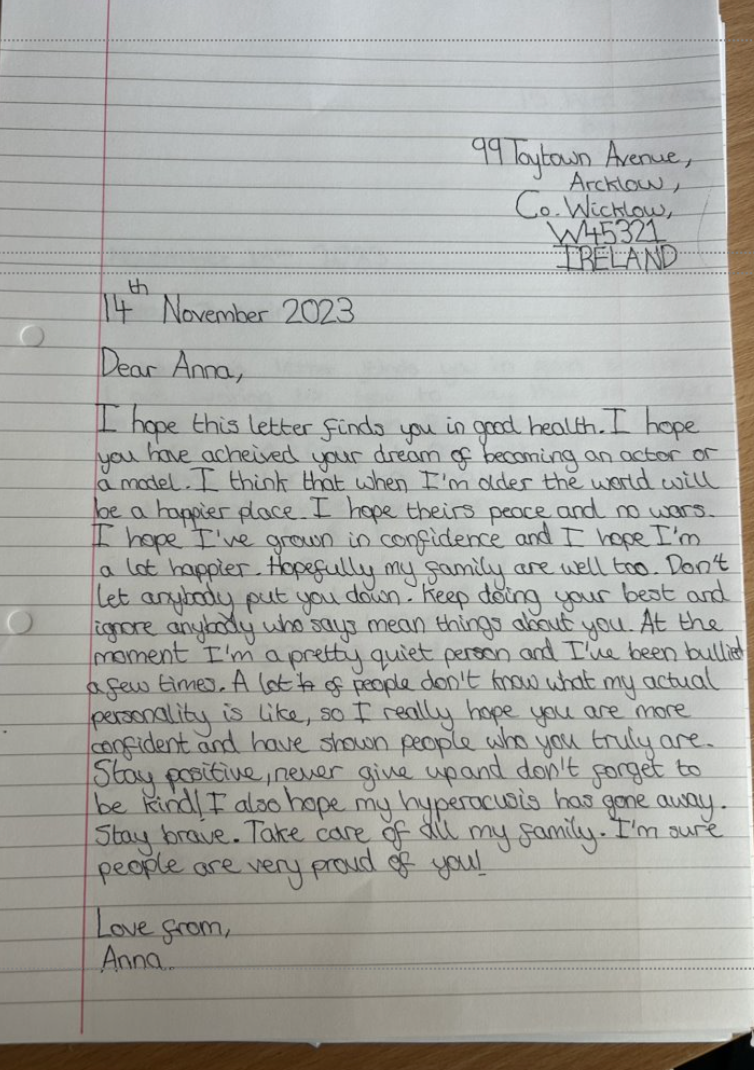 99 Toytown Avenue,
Arcklow,
Co. Wicklow,
W45321
IRELAND
14th November 2023
Dear Anna,
I hope this letter finds you in good health. I hope
you have acheived your dream of becoming an actor or
a model. I think that when I'm older the world will
be a happier place. I hope theirs peace and no wars.
I hope I've grown in confidence and I hope I'm
a lot happier. Hopefully my family are well too. Don't
let anybody put you down. Keep doing your best and
ignore anybody who says mean things about you. At the
moment I'm a pretty quiet person and I've been bullied
a few times. A lot of people don't know what my actual
personality is like, so I really hope you are more
confident and have shown people who you truly are.
Stay positive, never give up and don't forget to
be kind! I also hope my hyperacusis has gone away.
Stay brave. Take care of all my family. I'm sure
people are very proud of you!
Love from,
Anna